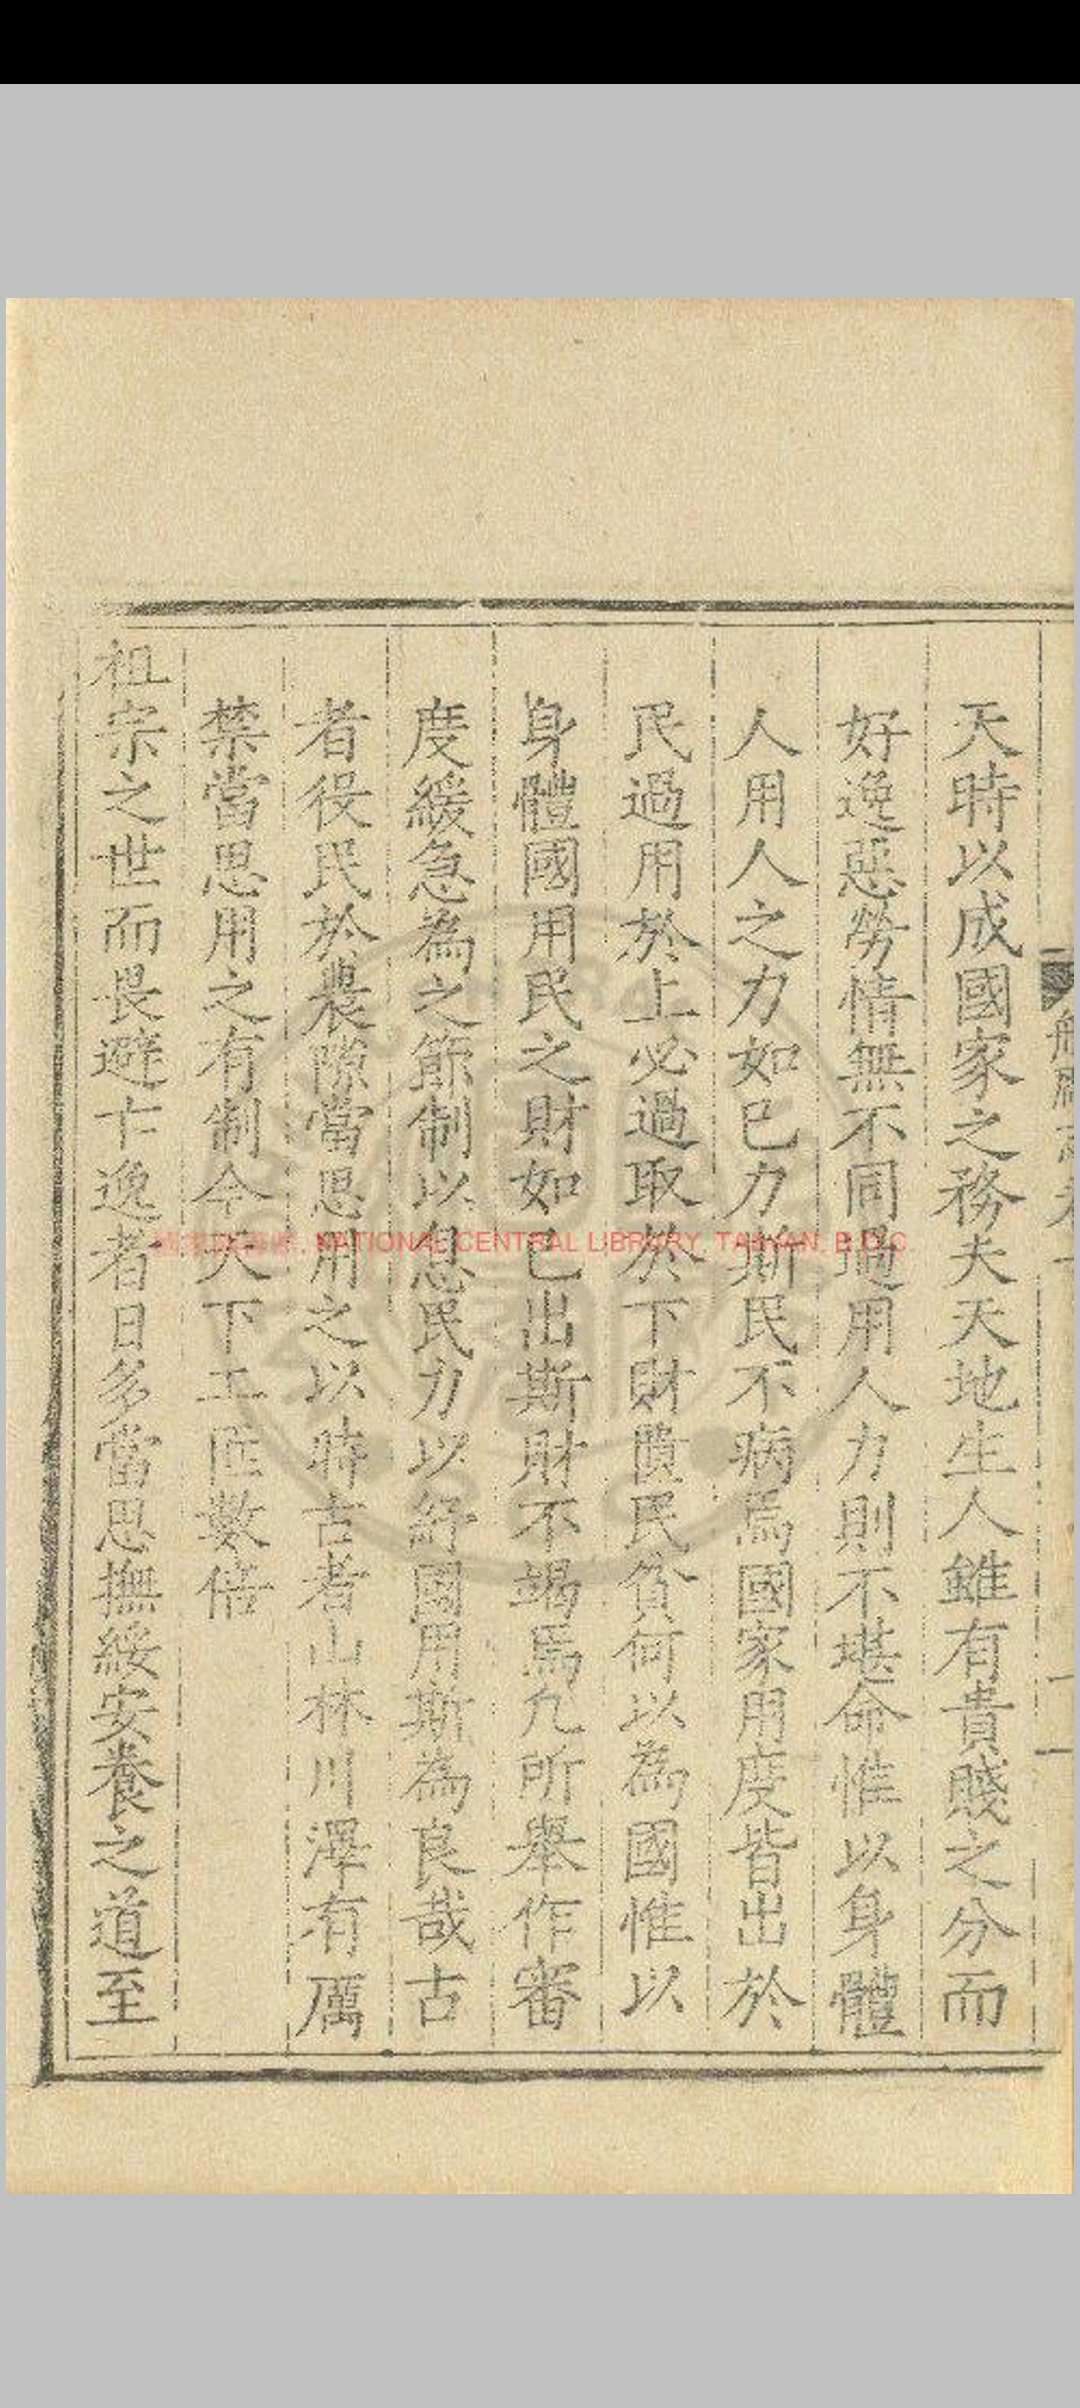 天時以成國家之務夫天地生人雖有貴賤之分而
好逸惡勞情無不同過用人力則不堪命惟以身體
人用人之力如已力斯民不病焉國家用度皆出於
民過用於上必過取於下財匱民貧何以為國惟以
身體國用民之財如已出斯財不竭焉凢所舉作審
度緩急為之節制以息民力以紓國用斯為良哉古
者役民於農隙當思用之以時古者山林川澤有厲
禁當思用之有制今天下工匠數倍
祖宗之世而畏避亡逸者日多當思撫綏安養之道至
NATIONAL CENTRAL LIBRARY, TAIWAN, R.O.C.